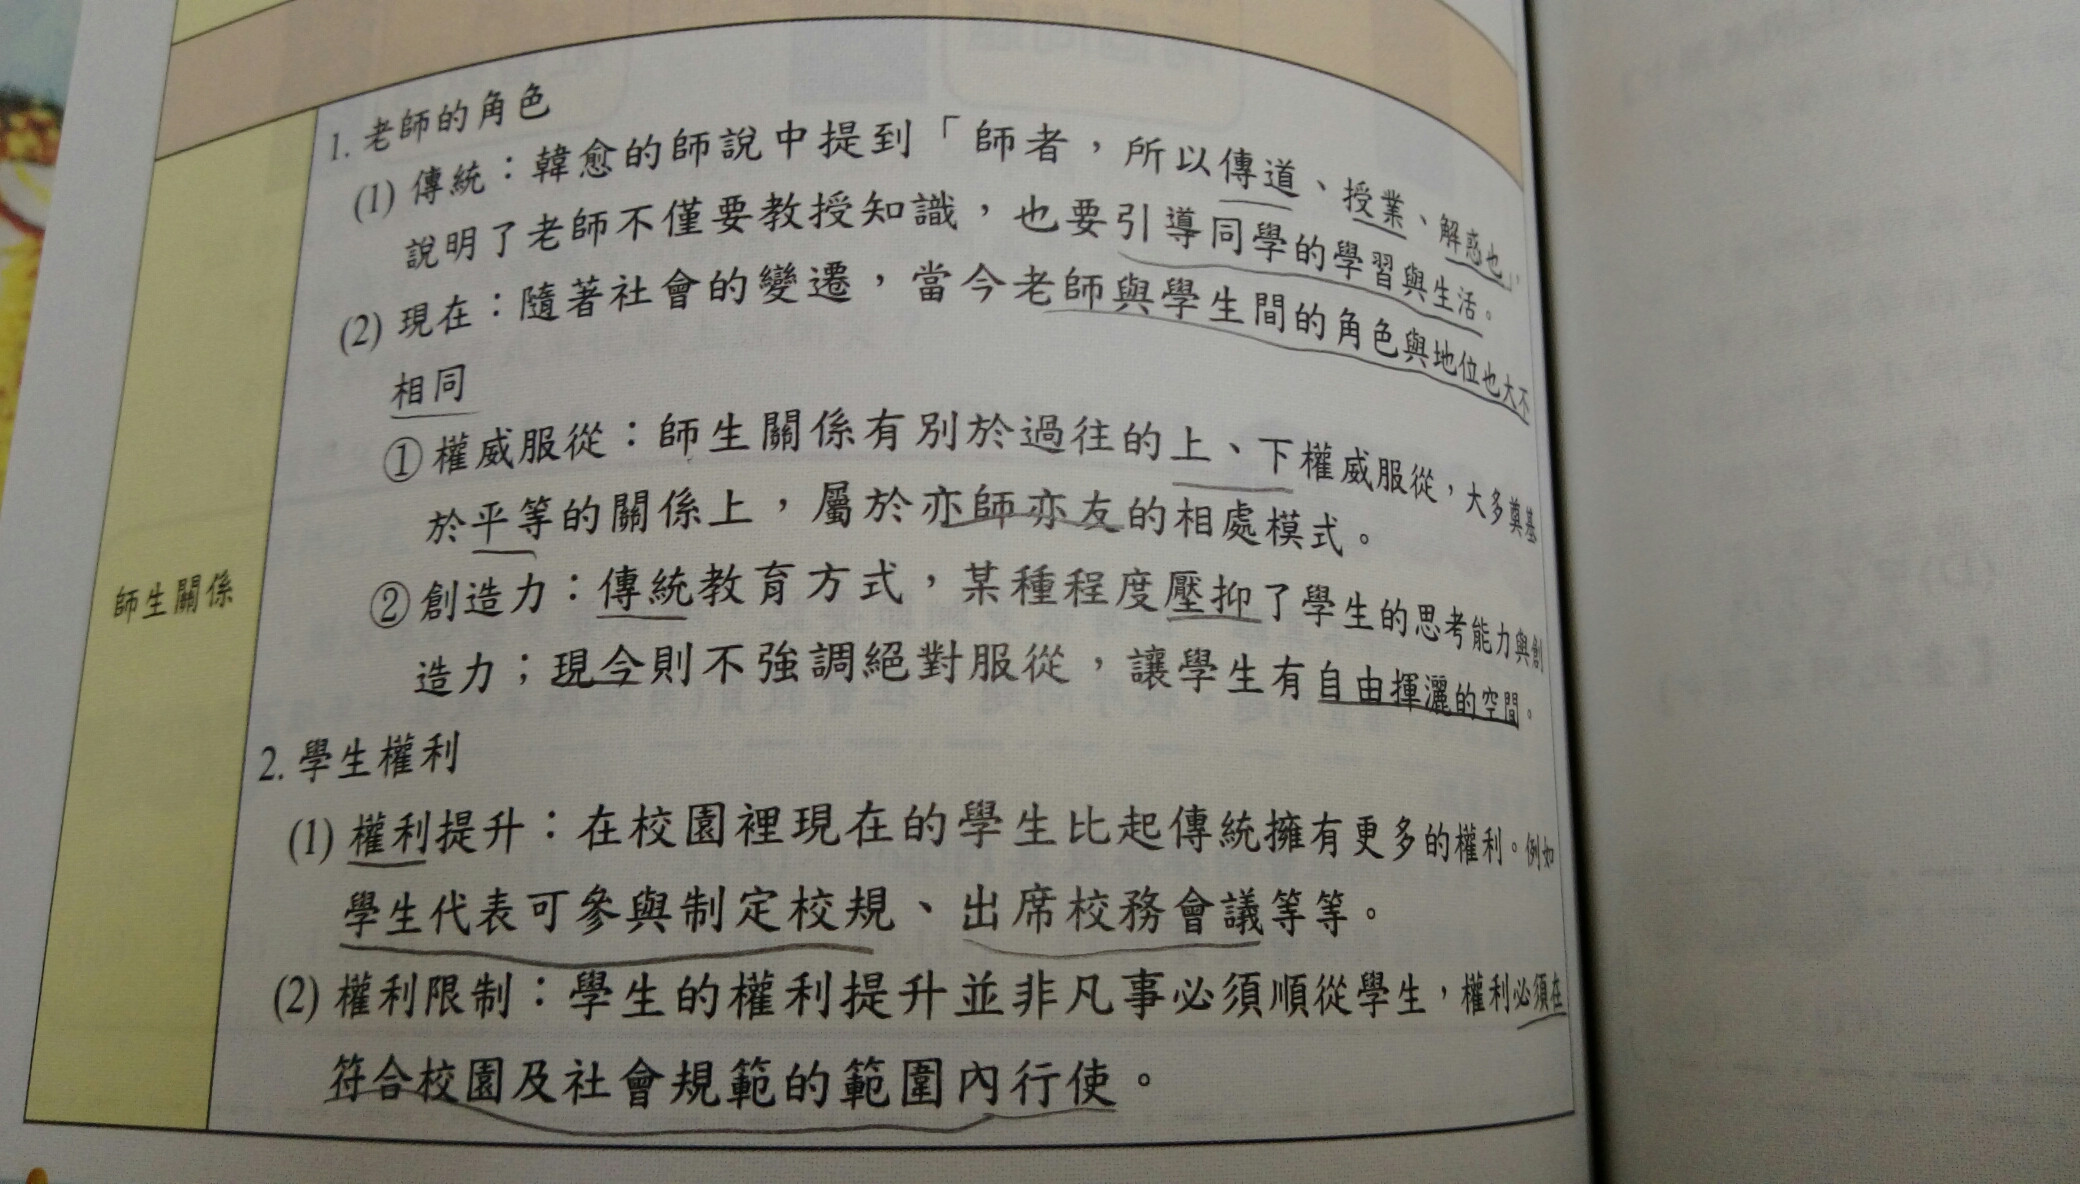 師生關係
1. 老師的角色
(1) 傳統：韓愈的師說中提到「師者，所以傳道、授業、解惑也」，
說明了老師不僅要教授知識，也要引導同學的學習與生活。
(2) 現在：隨著社會的變遷，當今老師與學生間的角色與地位也大不
相同
①權威服從：師生關係有別於過往的上、下權威服從，大多奠基
於平等的關係上，屬於亦師亦友的相處模式。
②創造力：傳統教育方式，某種程度壓抑了學生的思考能力與創
造力；現今則不強調絕對服從，讓學生有自由揮灑的空間。
2. 學生權利
(1) 權利提升：在校園裡現在的學生比起傳統擁有更多的權利。例如
學生代表可參與制定校規、出席校務會議等等。
(2) 權利限制：學生的權利提升並非凡事必須順從學生，權利必須在
符合校園及社會規範的範圍內行使。